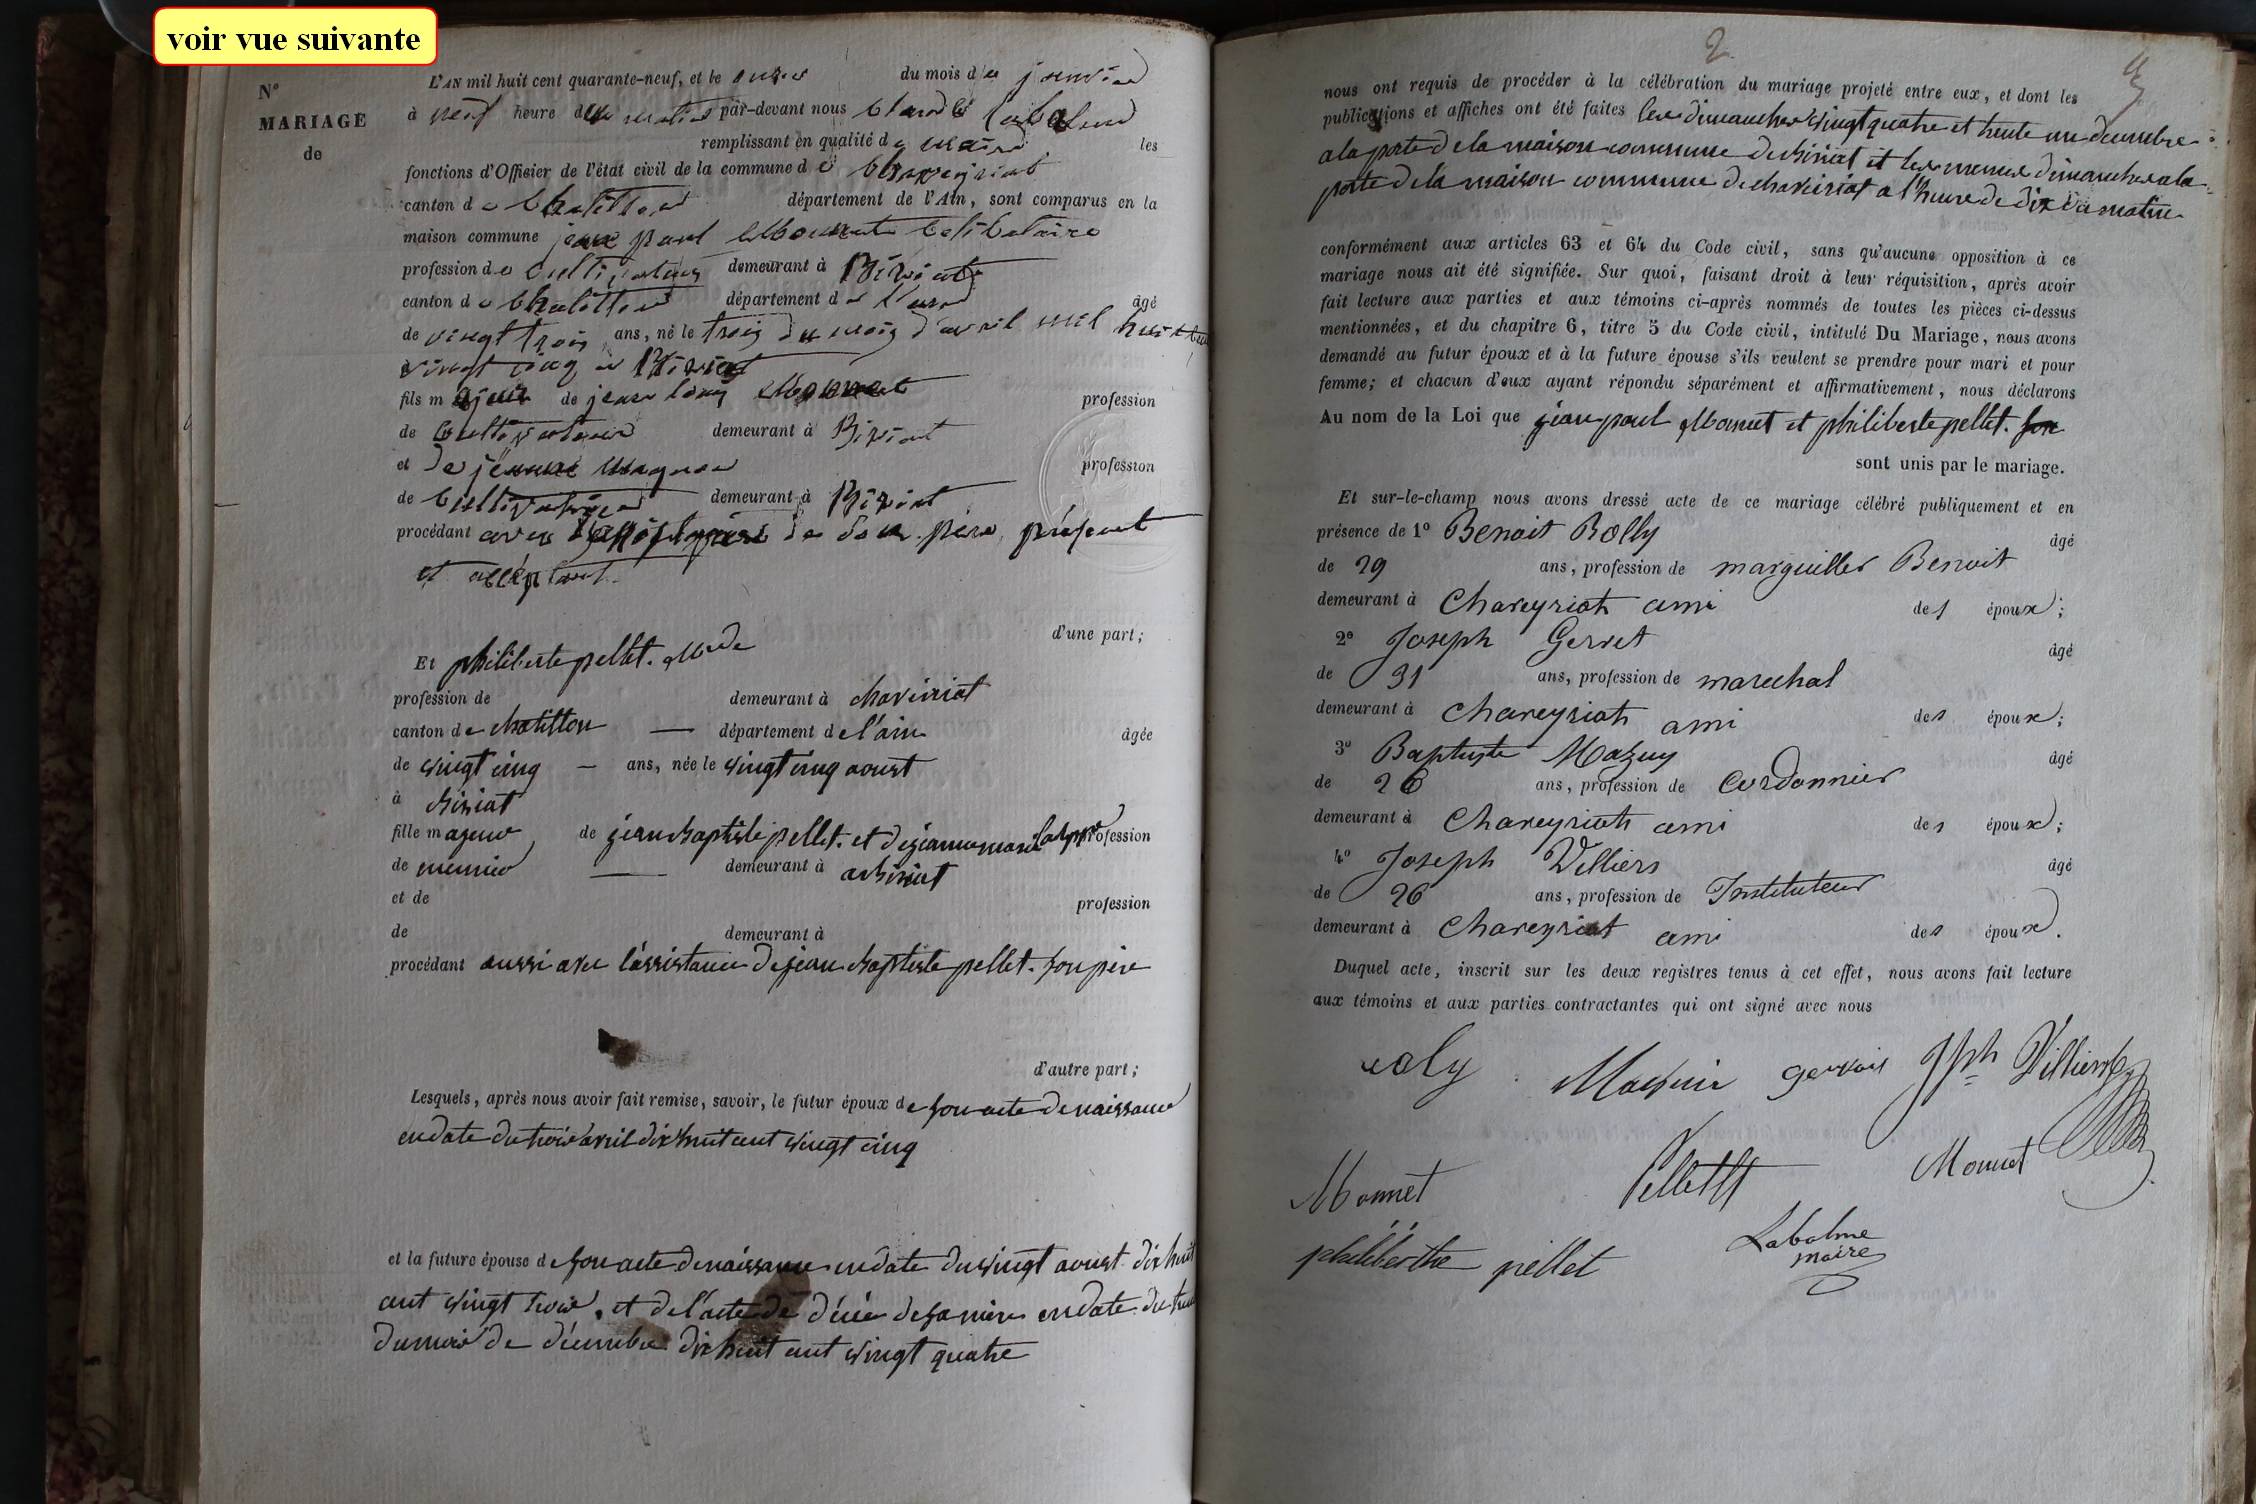 voir vue suivante
N°
MARIAGE
de
L'AN mil huit cent quarante-neuf, et le onze du mois de janvier
à neuf heure du matin par-devant nous Claude Labalme
remplissant en qualité de maire les
fonctions d'Officier de l'état civil de la commune de Chaveyriat
canton de Chatillon département de l'Ain, sont comparus en la
maison commune jean paul Monnet celibataire
profession de cultivateur demeurant à Biziat
canton de Chatillon département de l'ain âgé
de vingt trois ans, né le trois du mois d'avril mil huit cent
vingt cinq a Biziat
fils majeur de jean louis Monnet profession
de cultivateur demeurant à Biziat
et de jeanne profession
de cultivatrice demeurant à Biziat
procédant avec de son père, présent
et acceptant
d'une part;
Et philiberte pellet.
profession de demeurant à chaveiriat
canton de chatillon — département de l'ain âgée
de vingt cinq — ans, née le vingt cinq aoust
à biziat
fille majeur de jean baptiste pellet. et de jeanne marie profession
de meunier — demeurant à a biziat
et de profession
de demeurant à
procédant aussi avec l'assistance de jean baptiste pellet. son père
d'autre part;
Lesquels, après nous avoir fait remise, savoir, le futur époux de son acte de naissance
en date du trois avril dix huit cent vingt cinq
et la future épouse de son acte de naissance en date du vingt aoust dix huit
cent vingt trois, et de l'acte de décé de sa mère en date du
du mois de décembre dix huit cent vingt quatre
2
nous ont requis de procéder à la célébration du mariage projeté entre eux, et dont les
publications et affiches ont été faites les dimanches vingt quatre et trente un décembre
a la porte de la maison commune de biziat et les memes dimanches a la
porte de la maison commune de chaveiriat a l'heure de dix du matin
conformément aux articles 63 et 64 du Code civil, sans qu'aucune opposition à ce
mariage nous ait été signifiée. Sur quoi, faisant droit à leur réquisition, après avoir
fait lecture aux parties et aux témoins ci-après nommés de toutes les pièces ci-dessus
mentionnées, et du chapitre 6, titre 5 du Code civil, intitulé Du Mariage, nous avons
demandé au futur époux et à la future épouse s'ils veulent se prendre pour mari et pour
femme; et chacun d'eux ayant répondu séparément et affirmativement, nous déclarons
Au nom de la Loi que jean paul Monnet et philiberte pellet.
sont unis par le mariage.
Et sur-le-champ nous avons dressé acte de ce mariage célébré publiquement et en
présence de 1° Benoit Bolly âgé
de 29 ans, profession de marguiller Benoit
demeurant à Chaveyriat ami des époux;
2° Joseph Gervet âgé
de 31 ans, profession de marechal
demeurant à Chaveyriat ami des époux;
3° Baptiste Mazuy âgé
de 26 ans, profession de Cordonnier
demeurant à Chaveyriat ami des époux;
4° Joseph Villiers âgé
de 26 ans, profession de Instituteur
demeurant à Chaveyriat ami des époux.
Duquel acte, inscrit sur les deux registres tenus à cet effet, nous avons fait lecture
aux témoins et aux parties contractantes qui ont signé avec nous
gervais Jph Villiers
Monnet Pellet Monnet
philiberthe pellet Labalme
maire